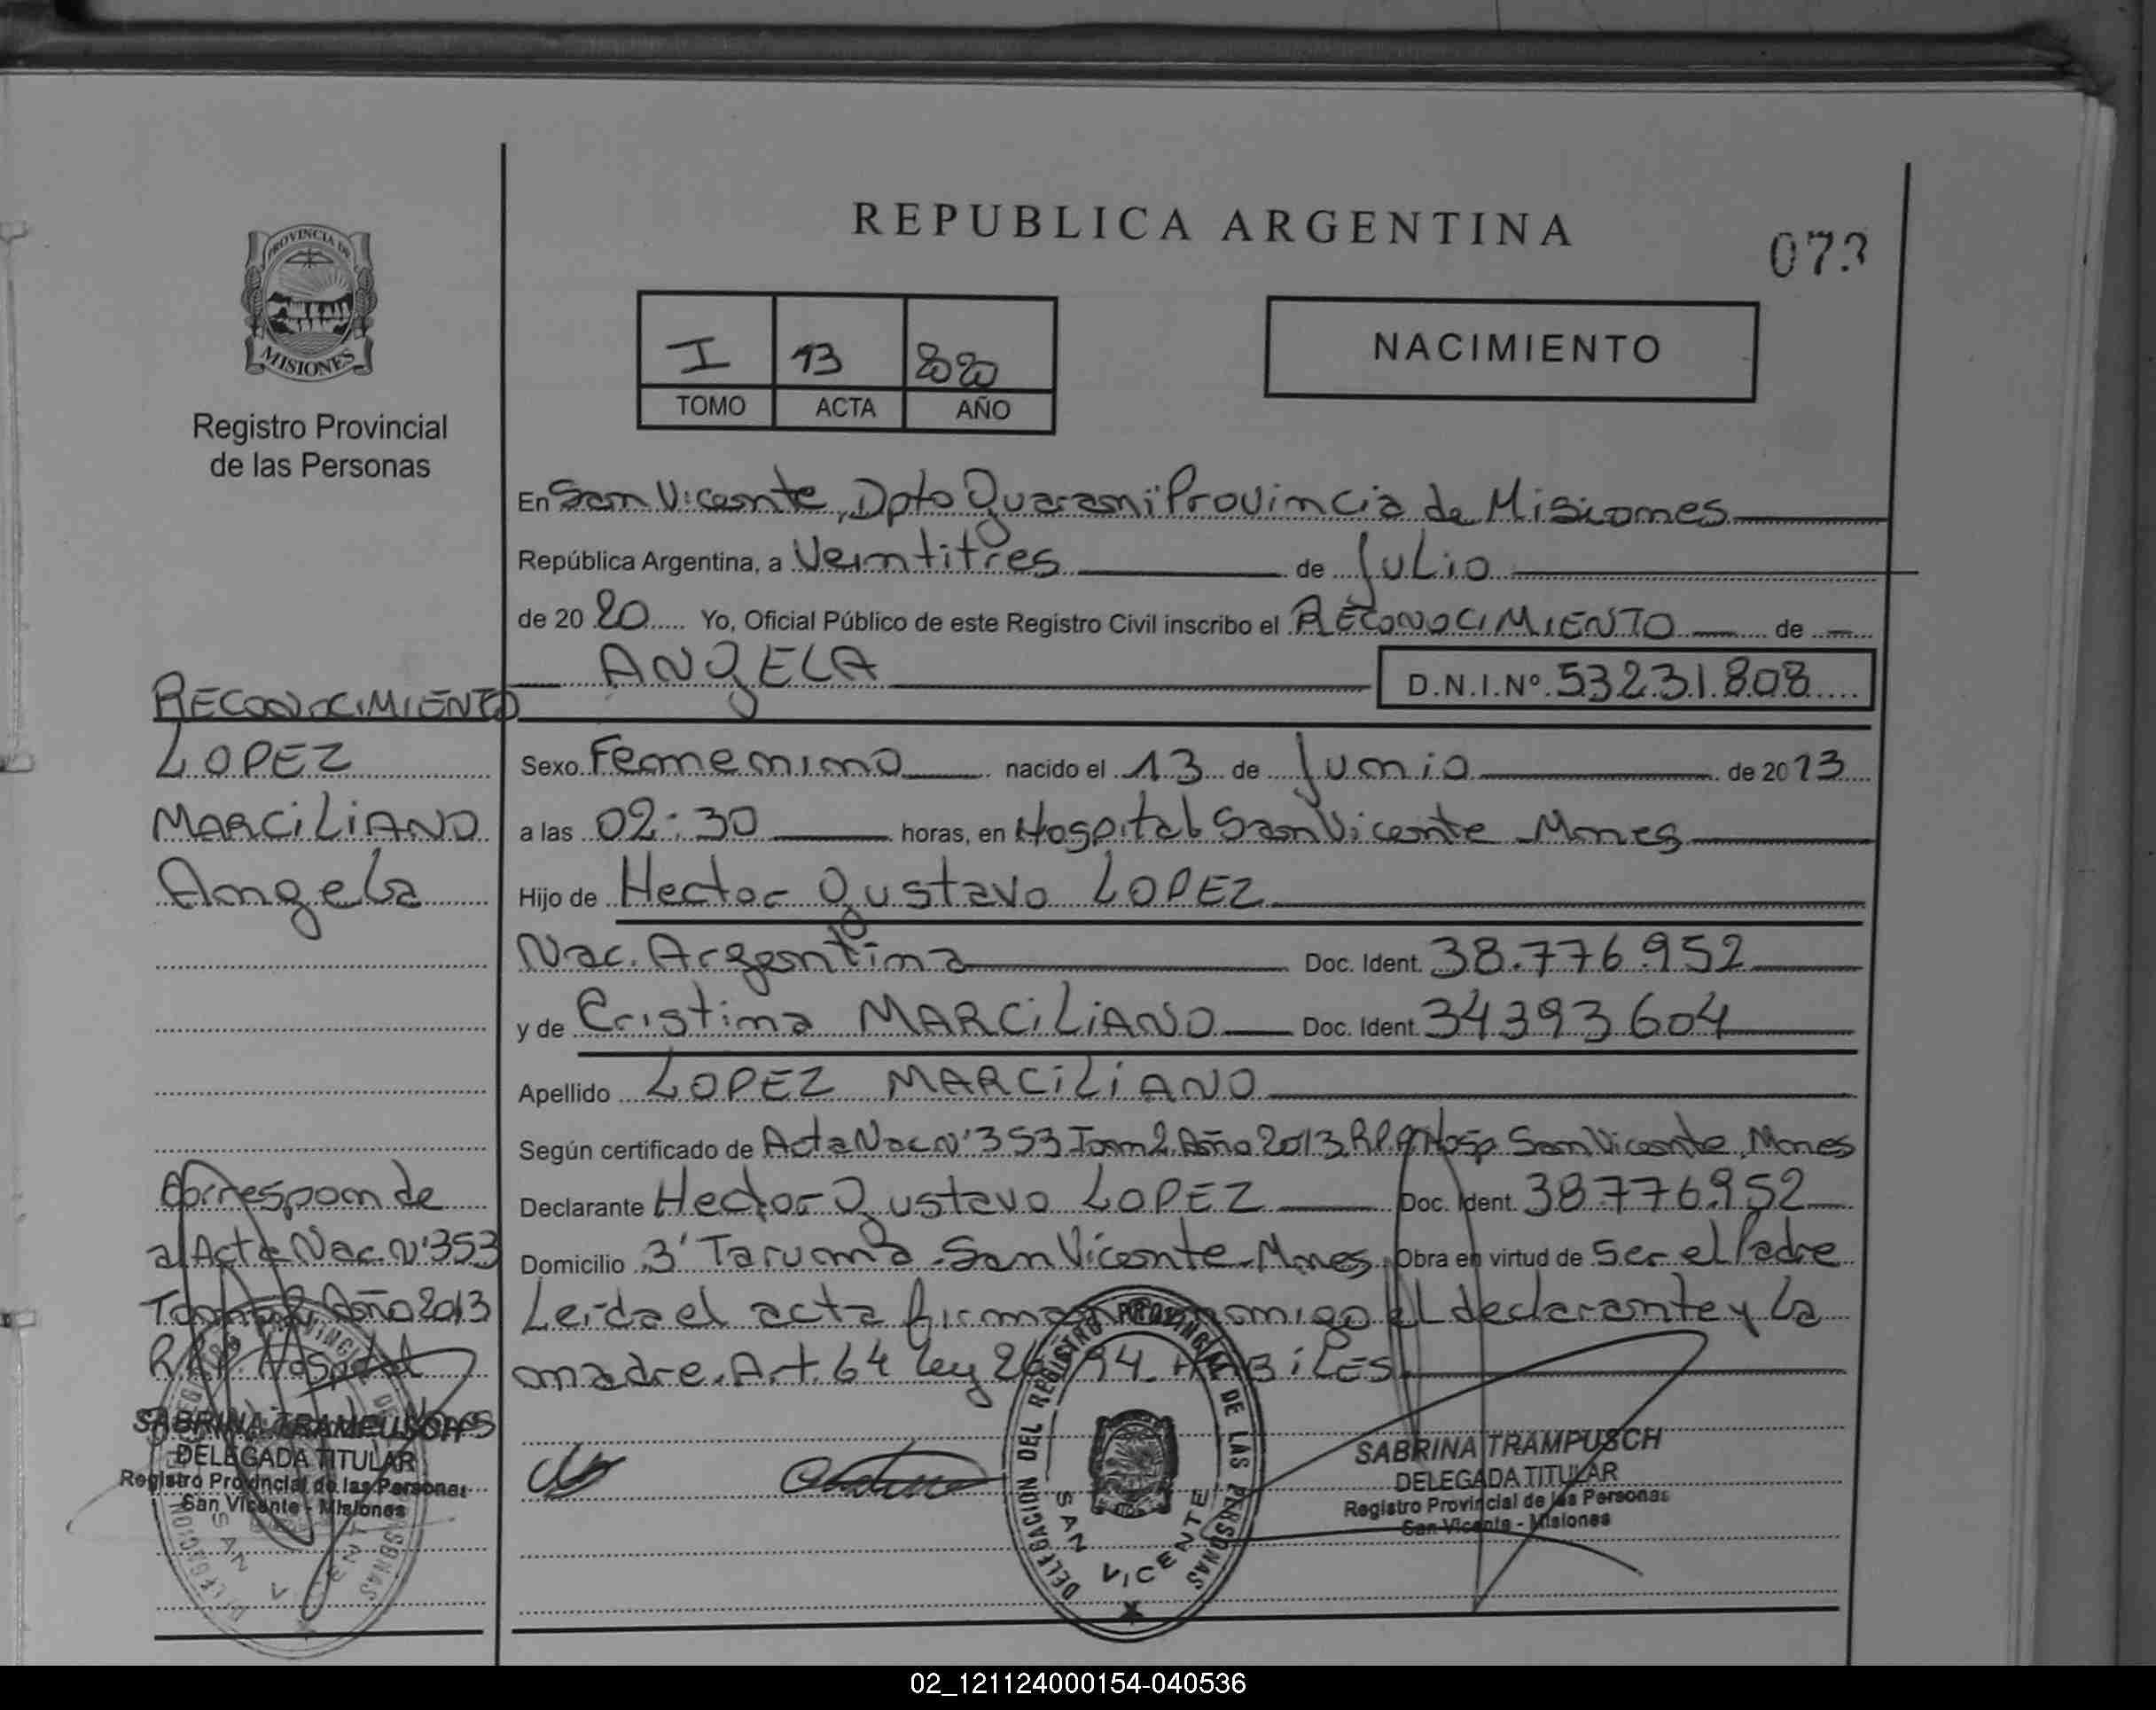 REPUBLICA ARGENTINA
073
PROVINCIA DE
MISIONES
Registro Provincial
de las Personas
I 13 2020
TOMO ACTA AÑO
NACIMIENTO
En San Vicente, Dpto Guarani Provincia de Misiones
República Argentina, a Veintitres de Julio
de 20 20 Yo, Oficial Público de este Registro Civil inscribo el RECONOCIMIENTO de
ANGELA D.N.I.Nº 53231808
RECONOCIMIENTO
LOPEZ
MARCiLiANO
Angela
Sexo Femenino nacido el 13 de Junio de 2013
a las 02:30 horas, en Hospital San Vicente Mnes
Hijo de Hector Gustavo LOPEZ
Nac. Argentina Doc. Ident. 38.776.952
y de Cristina MARCiLiANO Doc. Ident. 34393604
Apellido LOPEZ MARCiLiANO
Según certificado de Acta Nac N°353 Tom 2 Año 2013 R.P. Hosp San Vicente, Mnes
Declarante Hector Gustavo LOPEZ Doc. Ident. 38776952
Domicilio 3' Taruma San Vicente Mnes Obra en virtud de Ser el Padre
Leida el acta firman conmigo el declarante y la
madre. Art. 64 ley 26994 HABiLES
Corresponde
al Acta Nac. N°353
Año 2013
Hospital
SABRINA TRAMPUSCH
DELEGADA TITULAR
Registro Provincial de las Personas
San Vicente - Misiones
DELEGACION DEL REGISTRO PROVINCIAL DE LAS PERSONAS
SAN VICENTE
SABRINA TRAMPUSCH
DELEGADA TITULAR
Registro Provincial de las Personas
San Vicente - Misiones
02_121124000154-040536